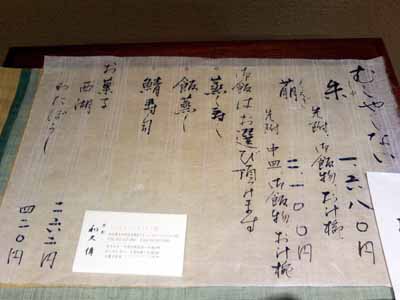 むしやしない
朱 一、六八〇円
先附 御飯物 お汁椀
萌 二、一〇〇円
先附 中皿 御飯物 お汁椀
御飯はお選び頂けます
蒸し寿し
飯蒸し
鯖寿司
お菓子
西湖 二六二円
わたぼうし 四二〇円
和久傳